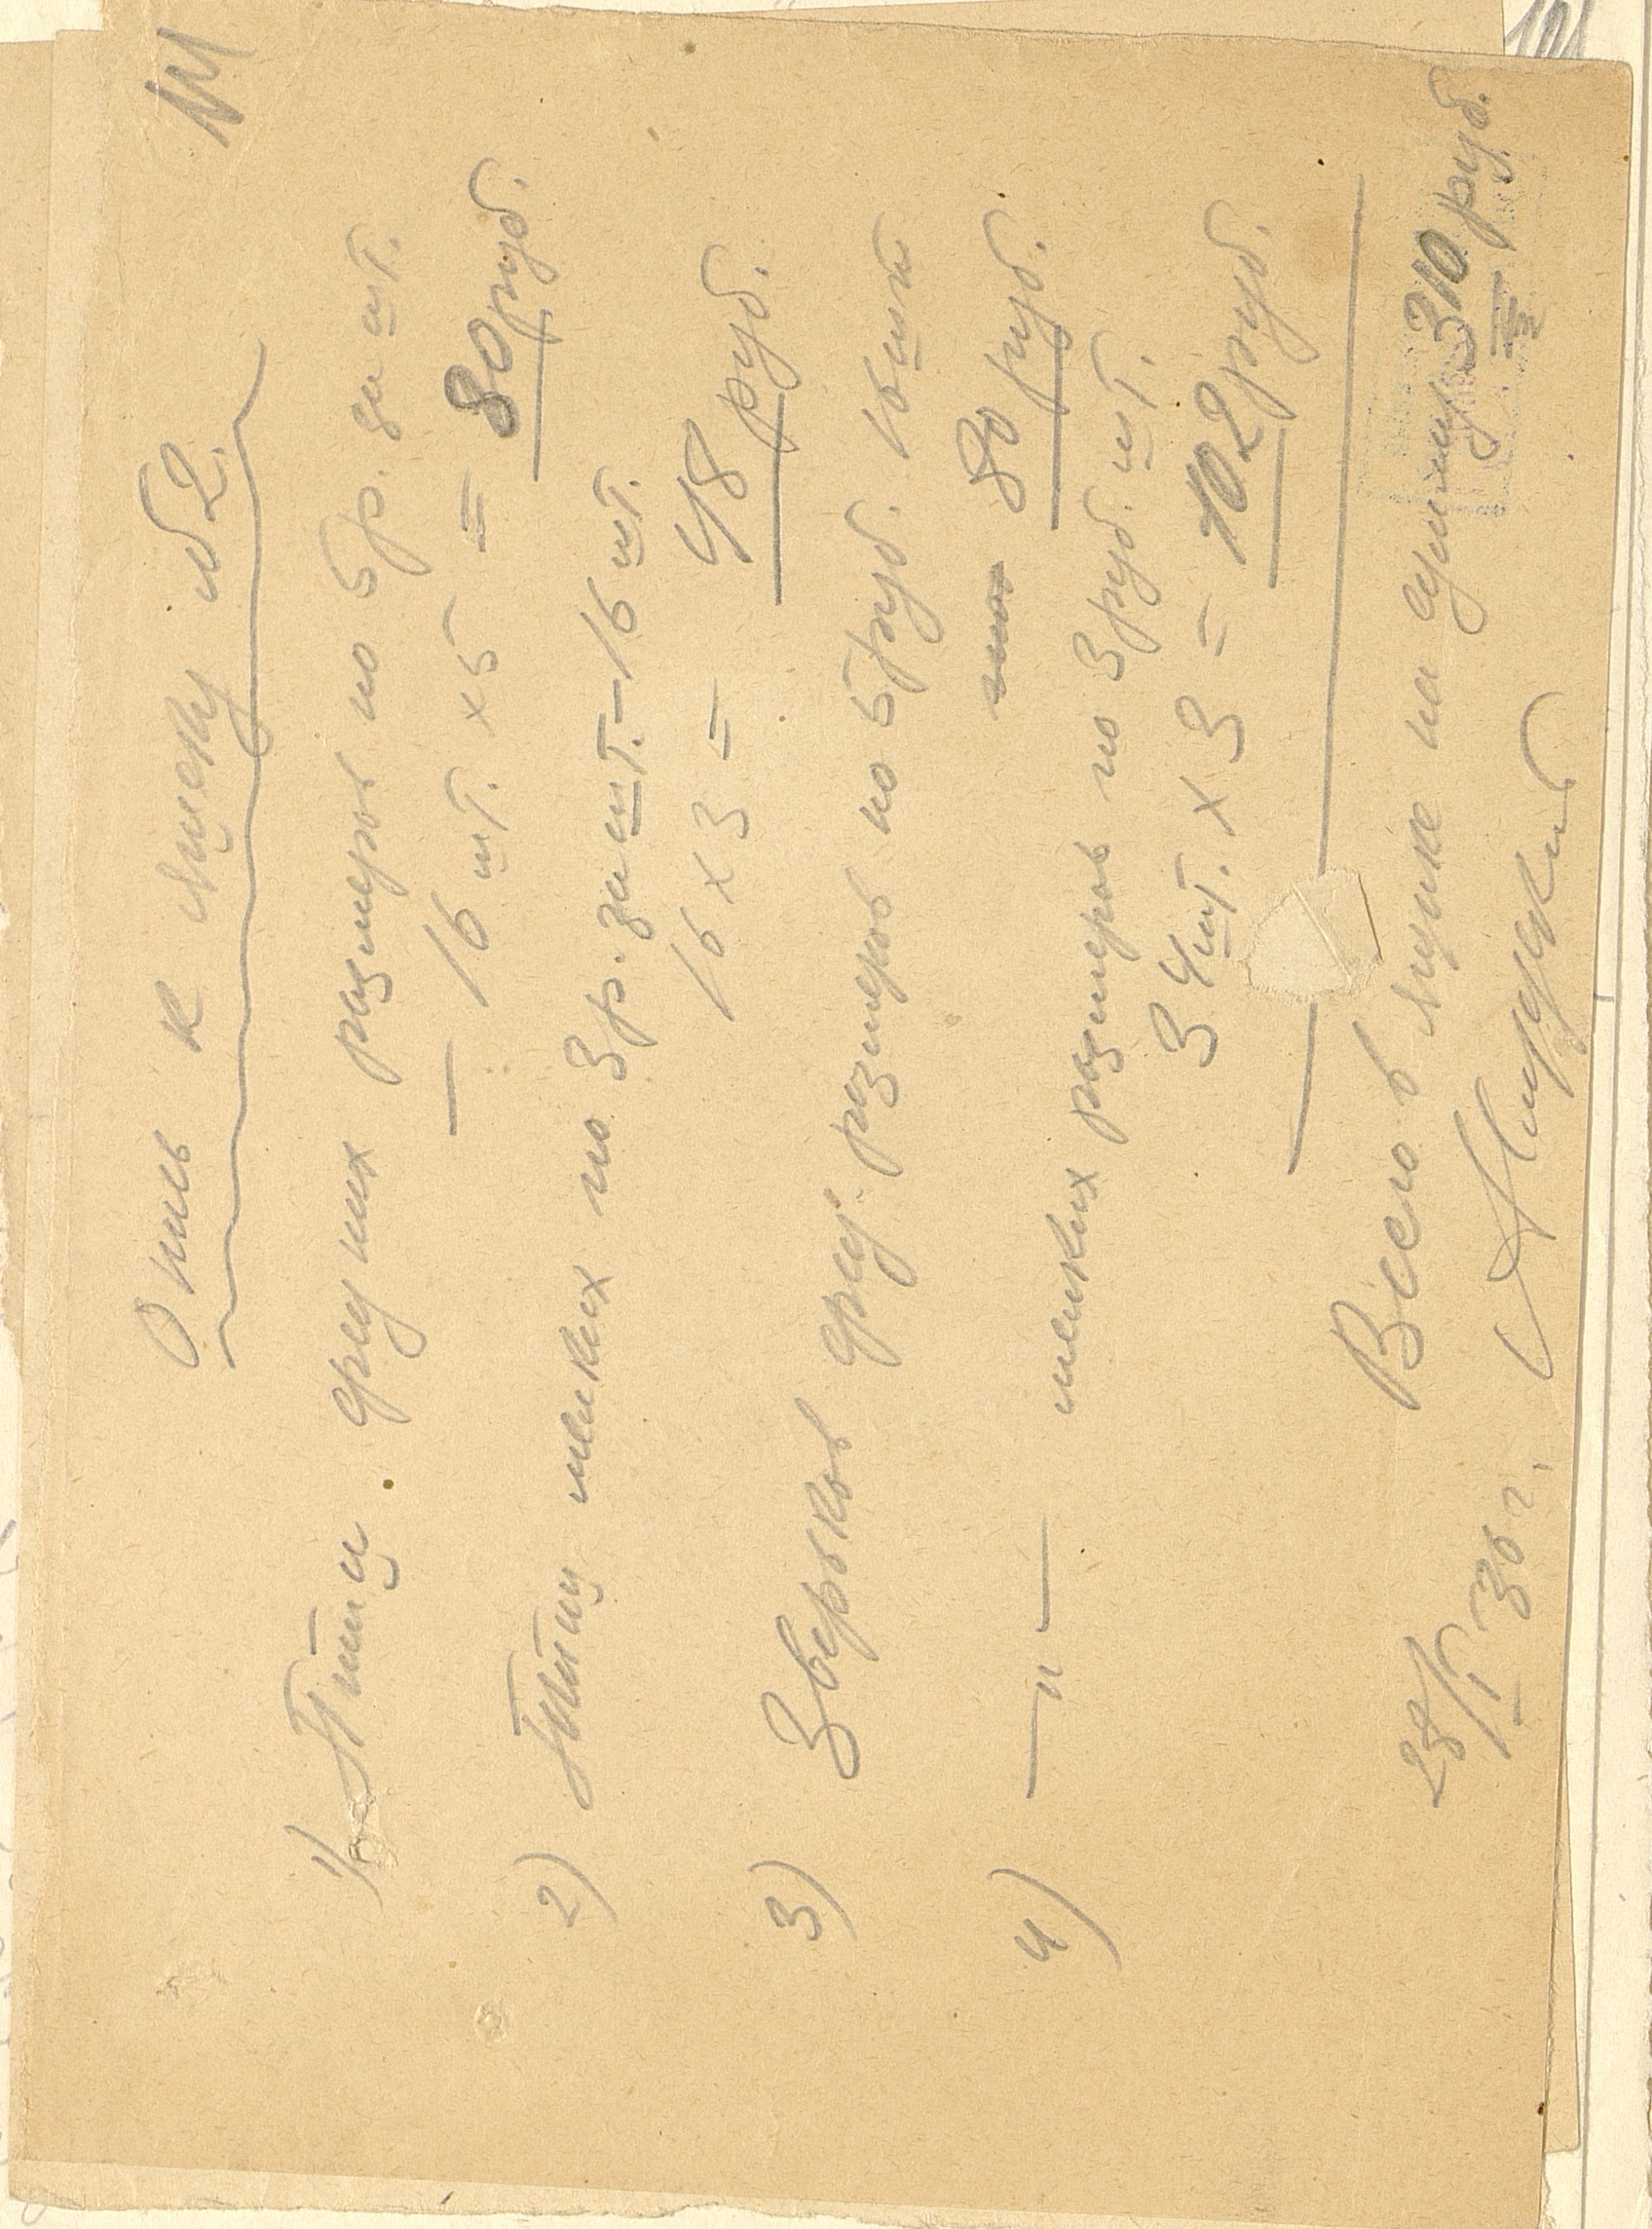 Опись к ящику № 2.
1) Птиц средних размеров по 5 р. за шт.
— 16 шт. х 5 = 80 руб.
2) Птиц мелких по 3 р. за шт. — 16 шт.
16 х 3 = 48 руб.
3) Зверьков сред. размеров по 5 руб. 16 шт
80 руб.
4) — " — мелких размеров по 3 руб. шт.
34 шт. х 3 = 102 руб.
Всего в ящике на сумму 310 руб.
28/I 30 г.